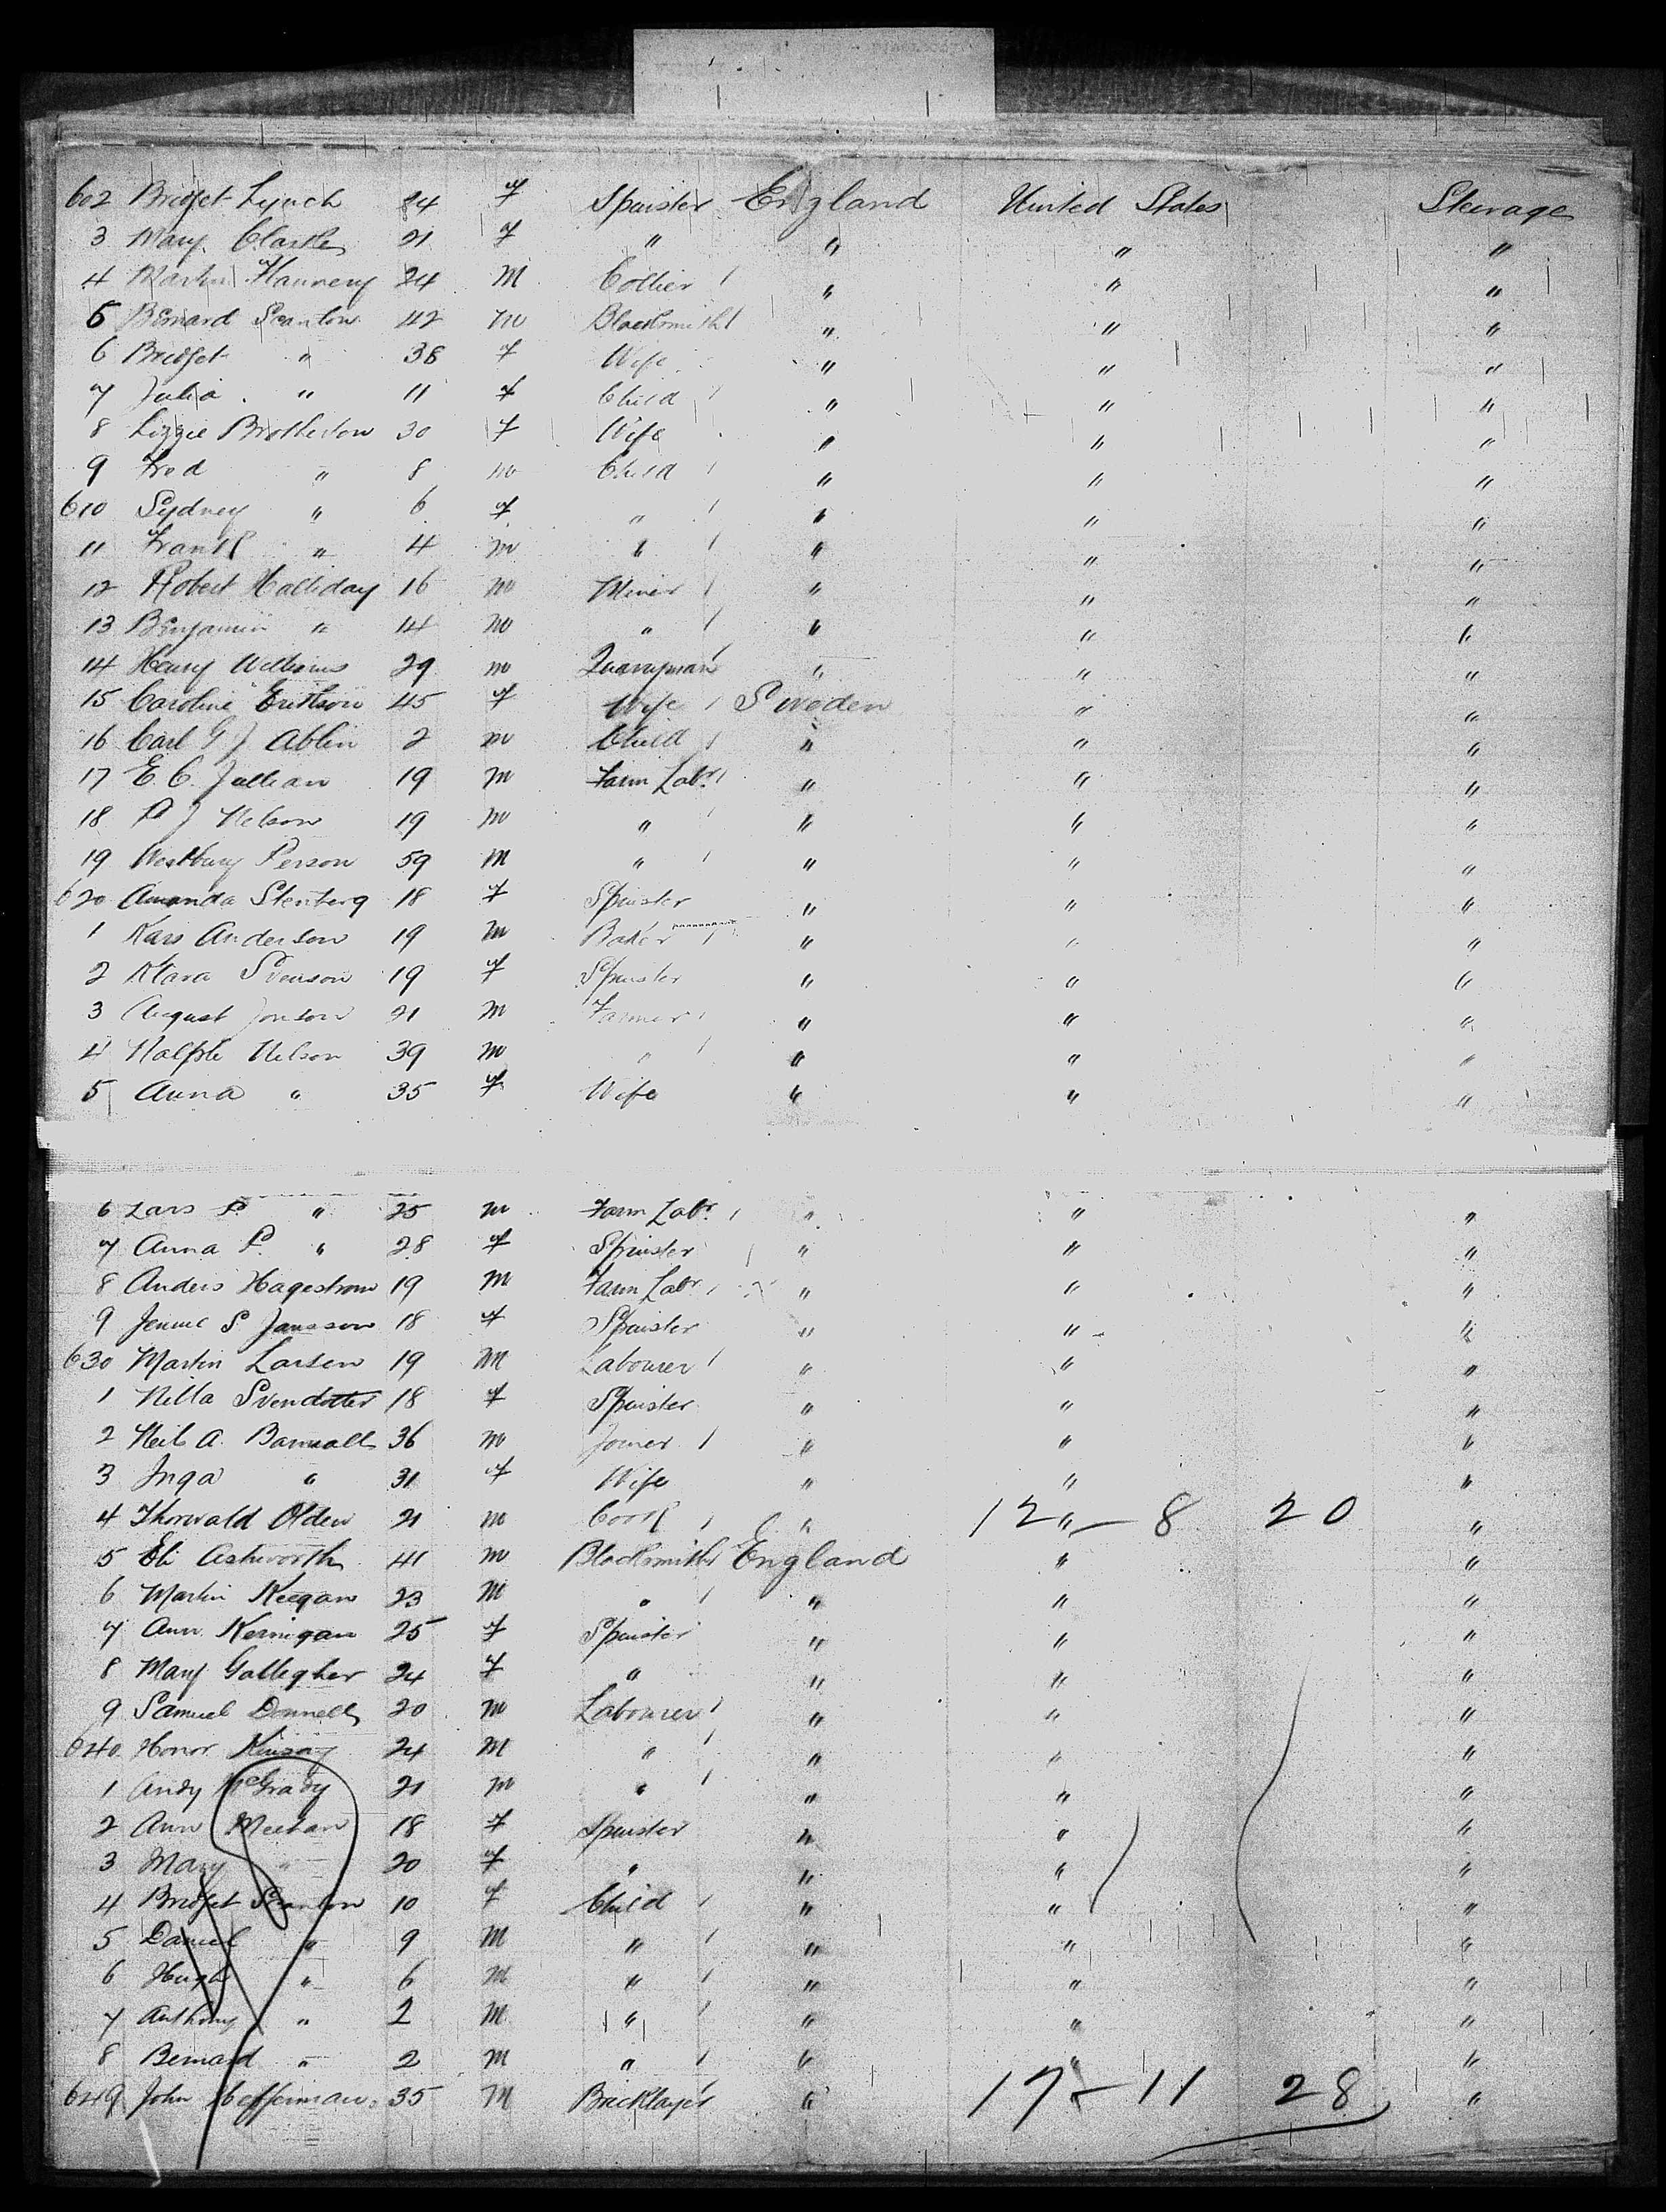 602 Bridget Lynch 24 f Spinster England United States Steerage
3 Mary Clarke 21 f " " " "
4 Martin Flannery 24 M Collier " " "
5 Bernard Scanlon 42 m Blacksmith " " "
6 Bridget " 38 f Wife " " "
7 Julia " 11 f Child " " "
8 Lizzie Brotherton 30 f Wife " " "
9 Fred " 8 m Child " " "
610 Sydney " 6 f " " " "
11 Frank " 4 m " " " "
12 Robert Halliday 16 m Miner " " "
13 Benjamin " 14 m " " " "
14 Henry Williams 29 m Quarryman " " "
15 Caroline Erikson 45 f Wife Sweden " "
16 Carl G J Ablin 2 m Child " " "
17 E. C. Jullian 19 m Farm Labr. " " "
18 P J Nelson 19 m " " " "
19 Westbury Person 59 m " " " "
620 Amanda Stenberg 18 f Spinster " " "
1 Kars Anderson 19 m Baker " " "
2 Klara Svenson 19 f Spinster " " "
3 August Jonson 21 m Farmer " " "
4 Nalple Nelson 39 m " " " "
5 Anna " 35 f Wife " " "
6 Lars P. " 25 m Farm Labr. " " "
7 Anna P. " 28 f Spinster " " "
8 Anders Hagestrom 19 m Farm Labr. " " "
9 Jennie S Jansson 18 f Spinster " " "
630 Martin Larsen 19 M Labourer " " "
1 Nilla Svendotter 18 f Spinster " " "
2 Neils A. 36 m Joiner " " "
3 Inga " 31 f Wife " " "
4 Thorwald Olden 21 m Cook " " 12 - 8 20 "
5 Eli Ashworth 41 m Blacksmith England " "
6 Martin Keegan 23 M " " " "
7 Ann Kernigan 25 f Spinster " " "
8 Mary Gallegher 24 f " " " "
9 Samuel Donnelly 20 m Labourer " " "
640 Honor 24 M " " " "
1 Andy McGrady 21 m " " " "
2 Ann Meehan 18 f Spinster " " "
3 Mary " 20 f " " " "
4 Bridget Scanlon 10 f Child " " "
5 Daniel " 9 M " " " "
6 Hugh " 6 M " " " "
7 Anthony " 2 M " " " "
8 Bernard " 2 M " " " "
649 John Heffernan 35 M Bricklayer " 17 - 11 28 "